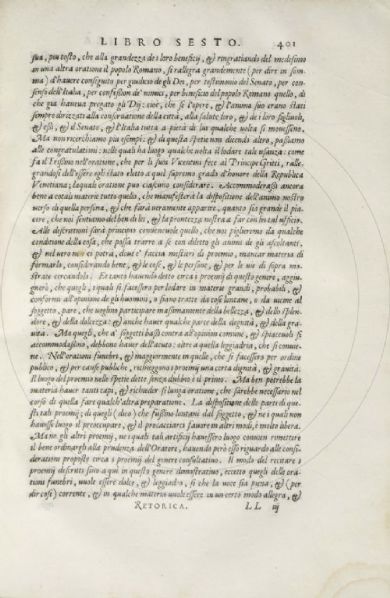 LIBRO SESTO. 401
sua, piu tosto, che alla grandezza de i loro beneficij, & ringratiando del medesimo
in una altra oratione il popolo Romano, si rallegra grandemente (per dire in som-
ma) d'hauere conseguito per giudicio de gli Dei, per testimonio del Senato, per con-
senso dell'Italia, per confession de nimici, per beneficio del popolo Romano quello, di
che già haueua pregato gli Dij: cioè, che se l'opere, & l'animo suo erano stati
sempre dirizzati alla conseruatione della città, alla salute loro, & de i loro figliuoli,
& essi, & il Senato, & l'Italia tutta a pietà di lui qualche uolta si mouessino.
Ma non ricerchiamo piu esempi; & di questa spetie non dicendo altro, passiamo
alle congratulationi: nelle quali hà luogo qualche uolta il lodare tale usanza: come
fa il nell'oratione, che per li suoi Vicentini fece al Principe Gritti, ralle-
grandosi dell'essere egli stato eleto a quel supremo grado d'honore della Republica
Venetiana; la quale oratione può ciascuno considerare. Accommoderassi ancora
bene a cotali materie tutto quello, che manifesterà la dispositione dell'animo nostro
uerso di quella persona, & che farà ueramente apparire, quanto sia grande il pia-
cere, che noi sentiamo del ben di lei, & la prontezza nostra a far cui tal ufficio.
Alle descrittioni sarà principio conueneuole quello, che noi piglieremo da qualche
conditione della cosa, che possa trarre a se con diletto gli animi de gli ascoltanti,
& nel uero non ci potrà, doue è faccia mestieri di proemio, mancar materia di
formarlo, considerando bene, & le cose, & le persone, & per le uie di sopra mo-
strate cercandolo. Et tanto hauendo detto circa i proemij di questo genere, aggiu-
gnerò, che quegli, i quali si facessero per lodare in materie grandi, probabili, &
conformi all'opinione de gli huomini, o siano tratte da cose lontane, o da uicine al
soggetto, pare, che uoglino participare massimamente della bellezza, & dello splen-
dore, & della dolcezza: & anche hauer qualche parte della dignità, & della gra-
uità. Ma quegli, che a' soggetti bassi contra all'opinion comune, & spiaceuoli si
accommodassino, debbono hauer dell'acuto: oltre a quella leggiadria, che si conuie-
ne. Nell'orationi funebri, & maggiormente in quelle, che si facessero per ordine
publico, & per cause publiche, richieggono i proemij una certa dignità, & grauità.
Il luogo del proemio nelle spetie dette senza dubbio è il primo. Ma ben potrebbe la
materia hauer tanti capi, & richieder sì lunga oratione, che sarebbe necessario nel
corso di quella fare qualch'altra preparatione. La dispositione delle parti di que-
sti tali proemij; di quegli (dico) che fussino lontani dal soggetto, & ne i quali non
hauesse luogo il preoccupare, & il procacciarsi fauore in altri modi, è molto libera.
Ma ne gli altri proemij, ne i quali tali artificij hauessero luogo conuien rimettere
il bene ordinargli alla prudenza dell'Oratore, hauendo però esso riguardo alle consi-
derationi proposte circa i proemij del genere consultatiuo. Il modo del recitare i
proemij descritti sino a qui in questo genere demostratiuo, eccetto quegli delle ora-
tioni funebri, uuole essere dolce, & leggiadro, sì che la uoce sia piena, & (per
dir così) corrente, & in qualche materia uuole essere in un certo modo allegra, &
RETORICA. LL iij